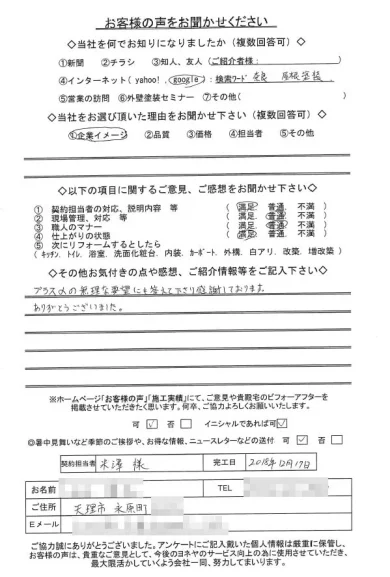 お客様の声をお聞かせください
◇当社を何でお知りになりましたか（複数回答可）◇
①新聞 ②チラシ ③知人、友人（ご紹介者様： ）
④インターネット（yahoo!、google）：検索ワード 奈良 屋根塗装
⑤営業の訪問 ⑥外壁塗装セミナー ⑦その他（ ）
◇当社をお選び頂いた理由をお聞かせ下さい（複数回答可）◇
①企業イメージ ②品質 ③価格 ④担当者 ⑤その他
◇以下の項目に関するご意見、ご感想をお聞かせ下さい◇
① 契約担当者の対応、説明内容 等 （ 満足、 普通、 不満 ）
② 現場管理、対応 等 （ 満足、 普通、 不満 ）
③ 職人のマナー （ 満足、 普通、 不満 ）
④ 仕上がりの状態 （ 満足、 普通、 不満 ）
⑤ 次にリフォームするとしたら
（ キッチン、トイレ、浴室、洗面化粧台、内装、カーポート、外構、白アリ、改築、増改築 ）
◇その他お気付きの点や感想、ご紹介情報等をご記入下さい◇
プラスαの無理な要望にも答えて下さり感謝しております。
ありがとうございました。
※ホームページ「お客様の声」「施工実績」にて、ご意見や貴殿宅のビフォーアフターを
掲載させていただきたく思います。何卒、ご協力よろしくお願いいたします。
可 否 イニシャルであれば可
◎暑中見舞いなど季節のご挨拶や、お得な情報、ニュースレターなどの送付 可 否
契約担当者 米澤 様 完工日 2018年12月17日
お名前 TEL
ご住所 天理市 永原町
Eメール
ご協力誠にありがとうございました。アンケートにご記入戴いた個人情報は厳重に保管し、
お客様の声は、貴重なご意見として、今後のヨネヤのサービス向上の為に使用させていただき、
最大限活かしていくよう会社一同、努力してまいります。